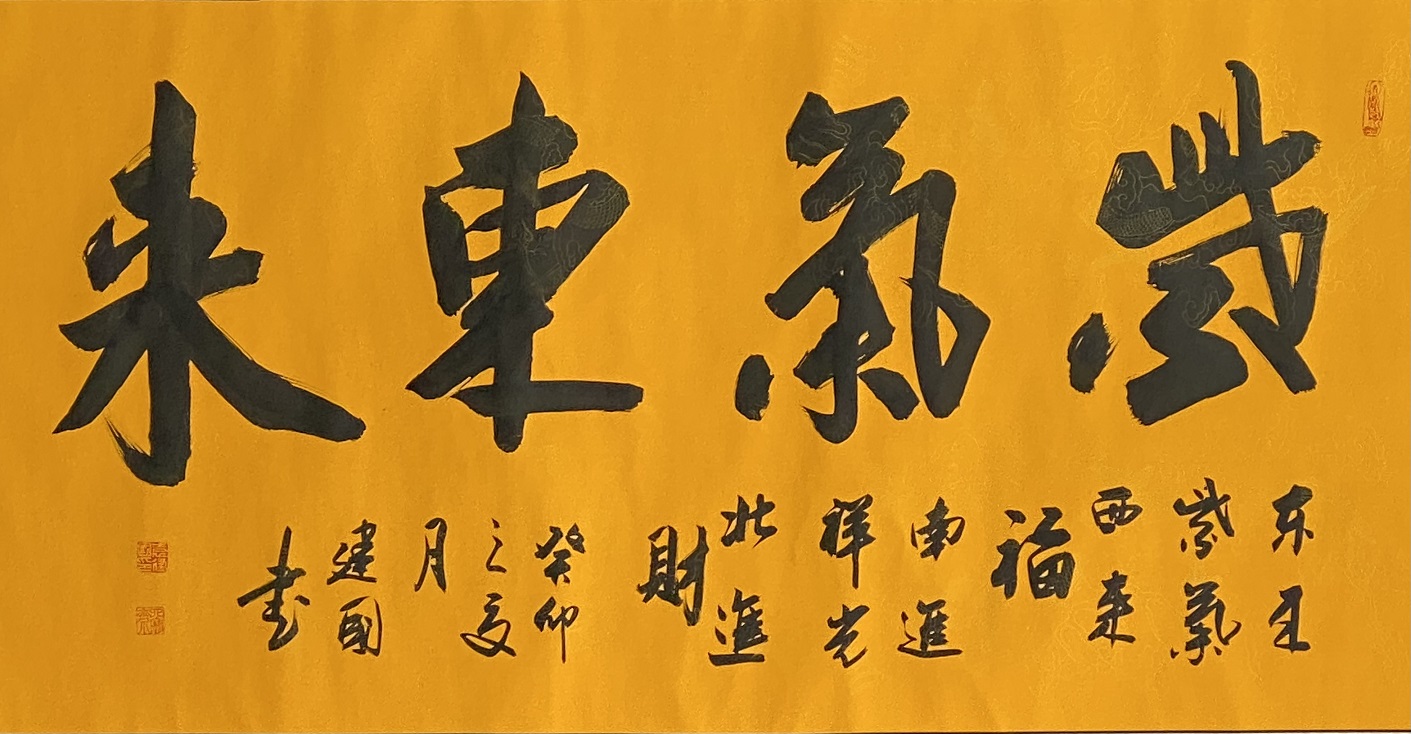 紫氣東来
东
紫氣
西来
福
南進
祥光
北進
財
癸卯
之夏
月
建國
書